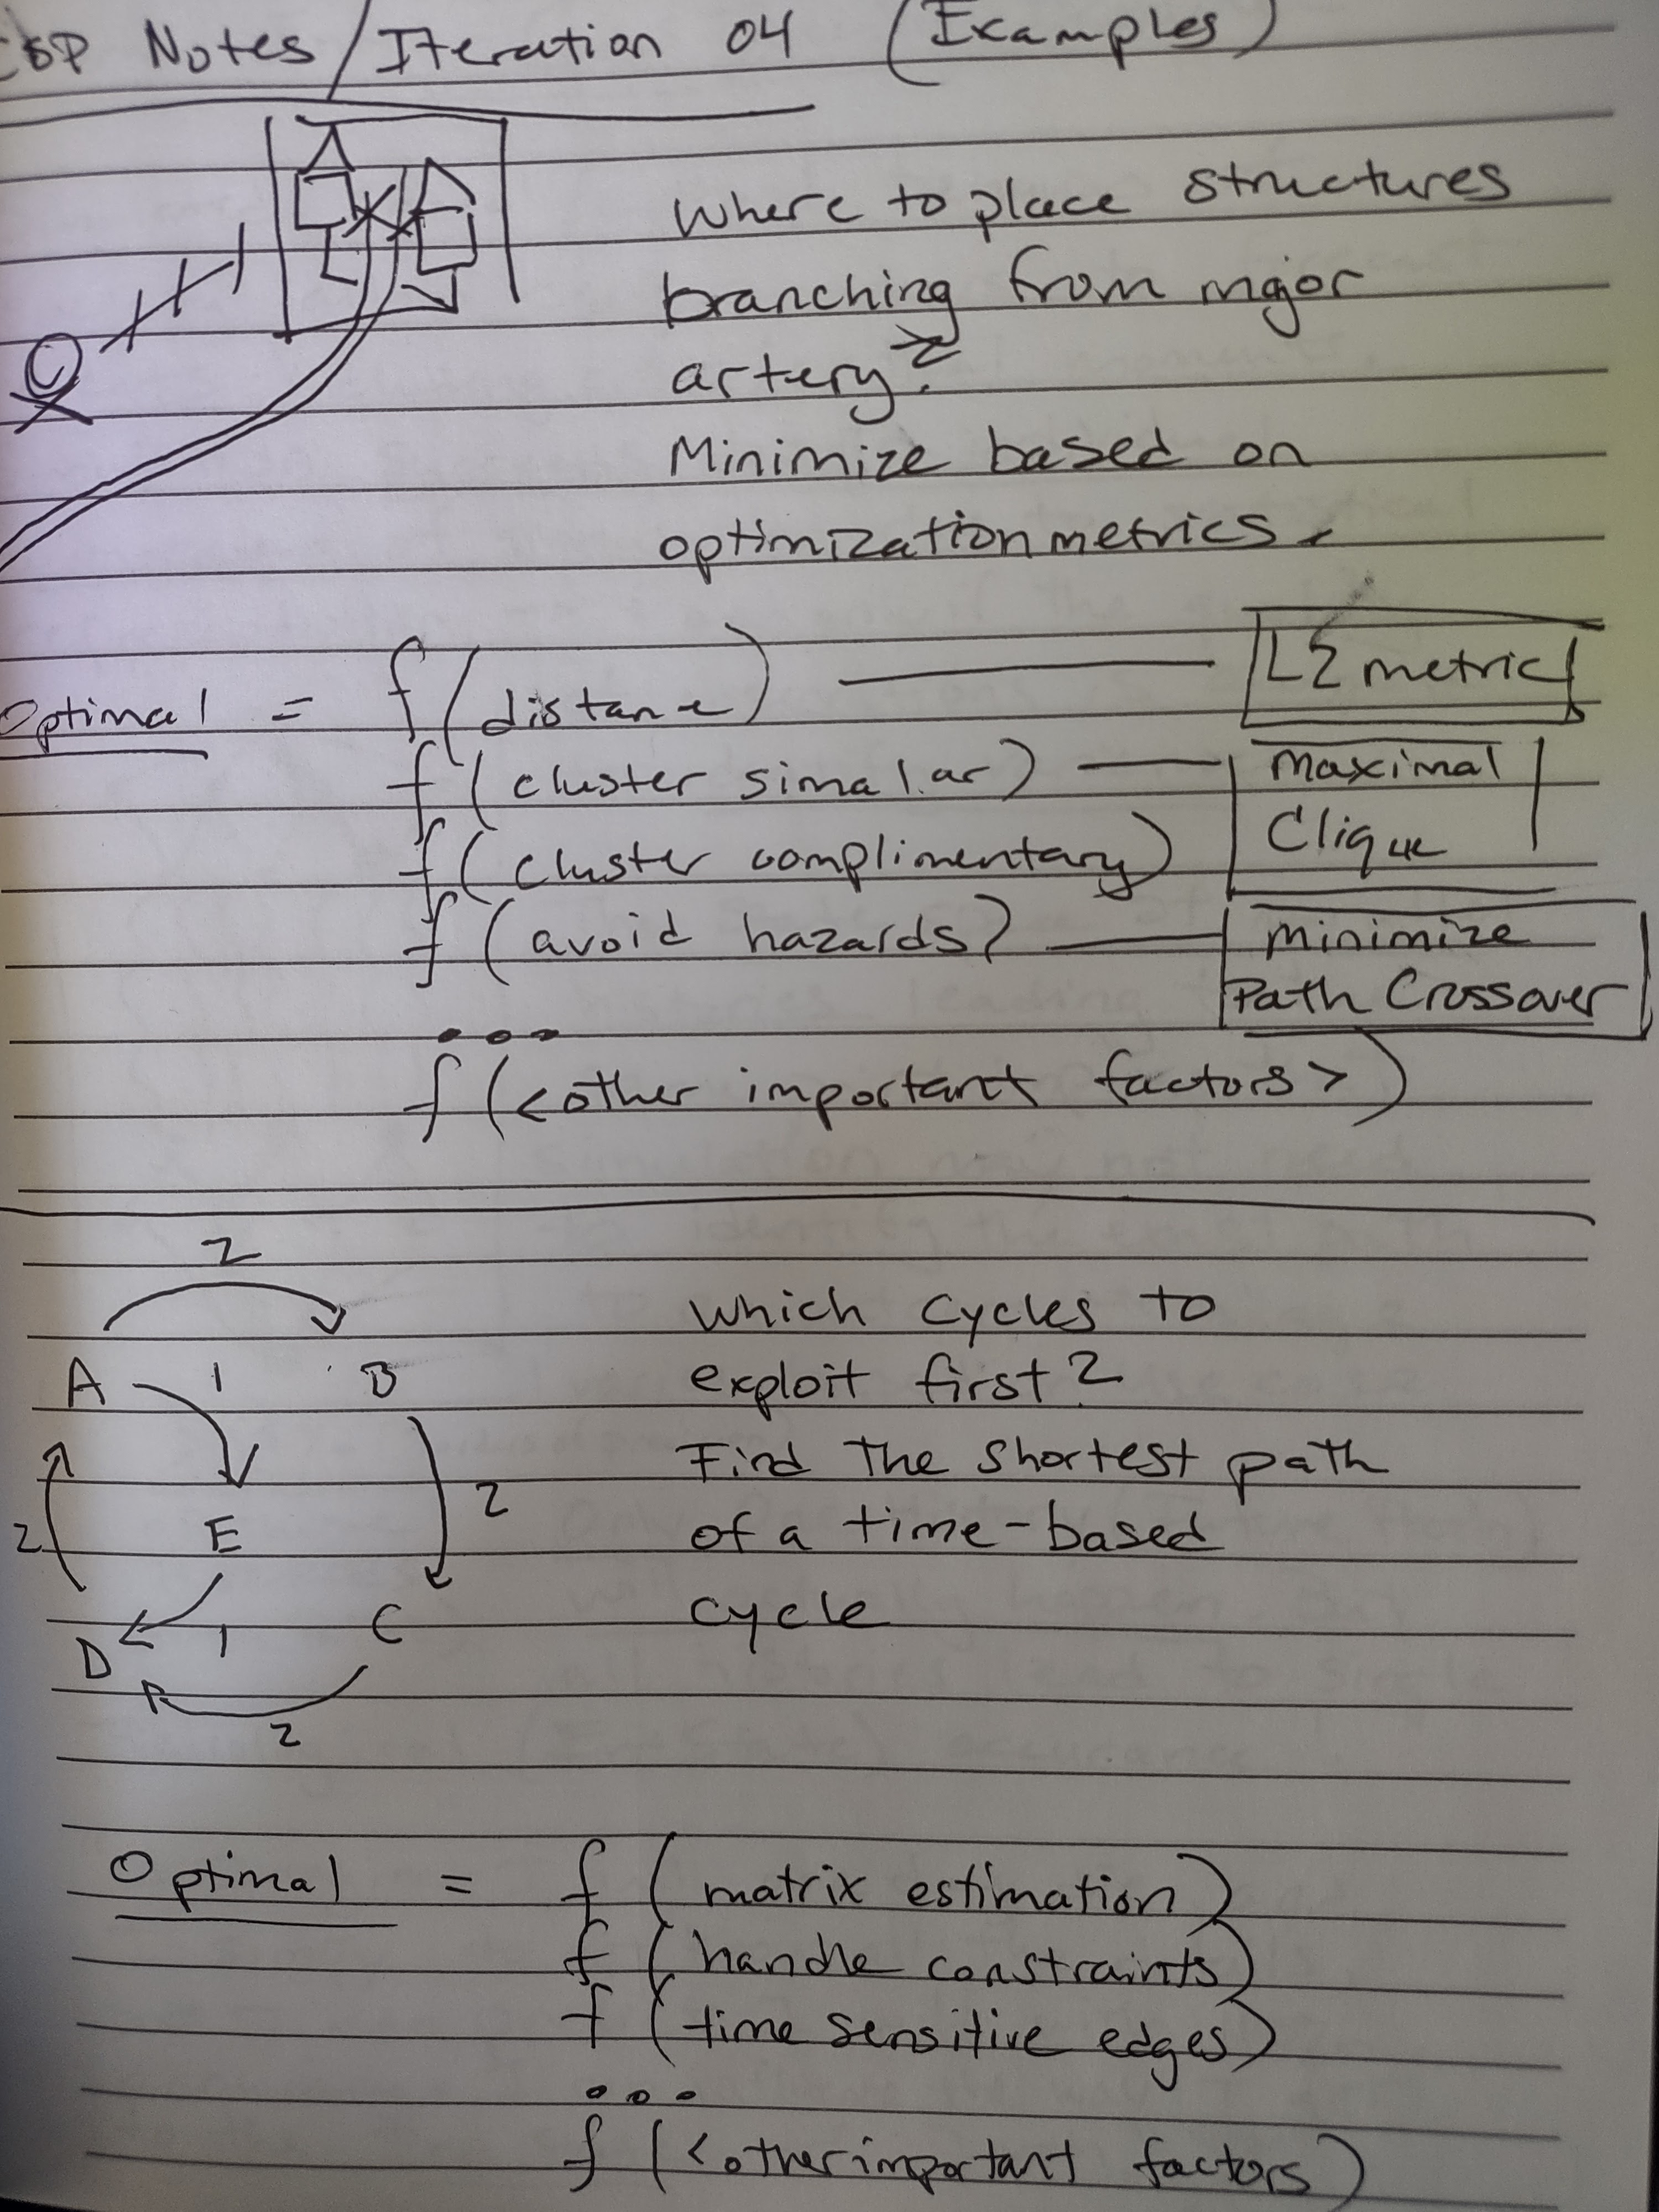 Notes / Iteration 04 (Examples)
Where to place structures
branching from major
artery?
Minimize based on
optimization metrics.
Optimal = f(distance) — L2 metric
f(cluster simalar) — Maximal
Clique
f(cluster complimentary)
f(avoid hazards) — Minimize
Path Crossover
...
f(<other important factors>)
2
A 1 B
2
2
E
D 1 C
2
Which cycles to
exploit first?
Find the shortest path
of a time-based
cycle
Optimal = f(matrix estimation)
f(handle constraints)
f(time sensitive edges)
...
f(<other important factors)